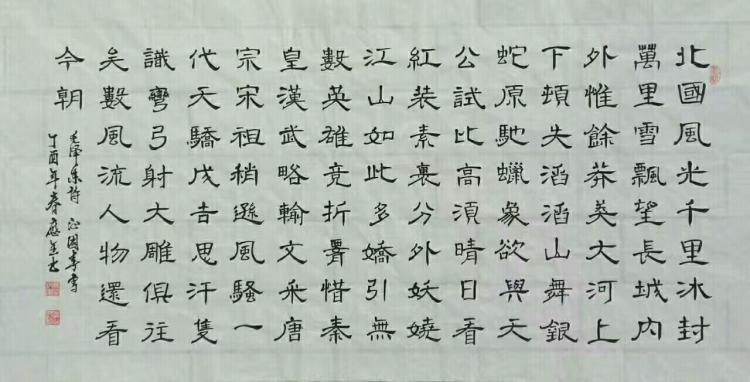 北國風光千里冰封
萬里雪飄望長城内
外惟餘莽莽大河上
下頓失滔滔山舞銀
蛇原馳蠟象欲與天
公試比高須晴日看
紅裝素裹分外妖嬈
江山如此多嬌引無
數英雄竞折腰惜秦
皇漢武略輸文采唐
宗宋祖稍遜風騷一
代天驕成吉思汗隻
識彎弓射大雕俱往
矣數風流人物還看
今朝
毛澤東詩 沁園春雪
丁酉年春